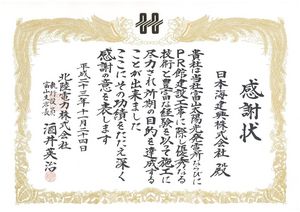 感謝状
日本海建興株式会社 殿
貴社は当社富山太陽光発電所ならびに
PR館建設工事に際し優秀なる
技術と豊富な経験を以て施工に
尽力され所期の目的を達成する
ことが出来ました
ここにその功績をたたえ深く
感謝の意を表します
平成二十三年十一月二十四日
北陸電力株式会社
執行役員
富山支店長 酒井英治